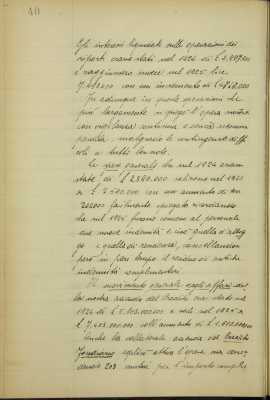 40
Gli interessi liquidati sulle operazioni dei
riporti erano stati nel 1924 di L
e raggiunsero invece nel 1925 lire
con un incremento di L
Fu adunque in queste operazioni che
più largamente si svolse l'opera nostra
con vigilanza continua e
malgrado le contingenze diffi
cili a tutti ben note.
Le spese generali che nel 1924 erano
state di L 2.390.000 salirono nel 1925
a L 2.580.000 con un aumento di
facilmente spiegato ricordando
che nel 1925 furono concesse al personale
due nuove indennità e cioè quella d'allog
gio e quella di residenza, cancellandosi
però in pari tempo il residuo di antiche
indennità complementari.
Il movimento generale degli affari del
la nostra azienda del Credito era stato nel
1924 di L 5. .000.000 e salì nel 1925 a
L 7. .000.000 coll'aumento di L
Anche la collaterale azienda del Credito
Fondiario esplicò attiva l'opera sua conce
dendo 203 mutui per l'importo comples